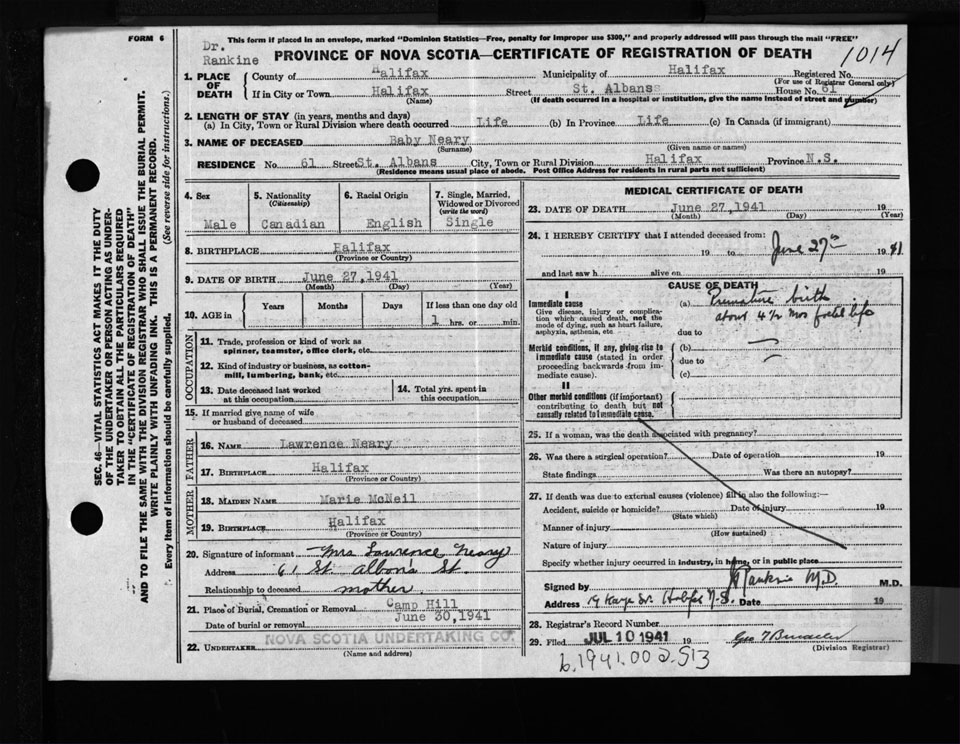 FORM 6
This form if placed in an envelope, marked "Dominion Statistics—Free, penalty for improper use $300," and properly addressed will pass through the mail "FREE"
Dr.
Rankine
PROVINCE OF NOVA SCOTIA—CERTIFICATE OF REGISTRATION OF DEATH
1014
1. PLACE OF DEATH
County of Halifax Municipality of Halifax Registered No.
(For use of Registrar General only)
If in City or Town Halifax Street St. Albans House No. 61
(Name) (If death occurred in a hospital or institution, give the name instead of street and number)
2. LENGTH OF STAY (in years, months and days)
(a) In City, Town or Rural Division where death occurred Life (b) In Province Life (c) In Canada (if immigrant)
3. NAME OF DECEASED Baby Neary
(Surname) (Given name or names)
RESIDENCE No 61 Street St. Albans City, Town or Rural Division Halifax Province N.S.
(Residence means usual place of abode. Post Office Address for residents in rural parts not sufficient)
4. Sex Male
5. Nationality (Citizenship) Canadian
6. Racial Origin English
7. Single, Married, Widowed or Divorced (write the word) Single
8. BIRTHPLACE Halifax
(Province or Country)
9. DATE OF BIRTH June 27,1941
(Month) (Day) (Year)
10. AGE in Years Months Days If less than one day old
1 hrs. or min.
OCCUPATION
11. Trade, profession or kind of work as spinner, teamster, office clerk, etc.
12. Kind of industry or business, as cotton-mill, lumbering, bank, etc.
13. Date deceased last worked at this occupation
14. Total yrs. spent in this occupation
15. If married give name of wife or husband of deceased
FATHER
16. NAME Lawrence Neary
17. BIRTHPLACE Halifax
(Province or Country)
MOTHER
18. MAIDEN NAME Marie McNeil
19. BIRTHPLACE Halifax
(Province or Country)
20. Signature of informant Mrs Lawrence Neary
Address 61 St. Alban's St.
Relationship to deceased mother
21. Place of Burial, Cremation or Removal Camp Hill
Date of burial or removal June 30,1941
NOVA SCOTIA UNDERTAKING CO.
22. UNDERTAKER
(Name and address)
MEDICAL CERTIFICATE OF DEATH
23. DATE OF DEATH June 27,1941 19
(Month) (Day) (Year)
24. I HEREBY CERTIFY that I attended deceased from:
19 to June 27th 1941
and last saw h alive on 19
CAUSE OF DEATH
I
Immediate cause (a) Premature birth
Give disease, injury or complication which caused death, not the mode of dying, such as heart failure, asphyxia, asthenia, etc.
about 4½ mos foetal life
due to
Morbid conditions, if any, giving rise to immediate cause (stated in order proceeding backwards from immediate cause).
(b)
due to
(c)
II
Other morbid conditions (if important) contributing to death but not causally related to immediate cause.
25. If a woman, was the death associated with pregnancy?
26. Was there a surgical operation? Date of operation 19
State findings Was there an autopsy?
27. If death was due to external causes (violence) fill in also the following:—
Accident, suicide or homicide? Date of injury 19
(State which)
Manner of injury
(How sustained)
Nature of injury
Specify whether injury occurred in industry, in home, or in public place
Signed by Rankine M.D. M.D.
Address Halifax N.S. Date 19
28. Registrar's Record Number
29. Filed JUL 10 1941 19
(Division Registrar)
b.1941.002.513
SEC. 46—VITAL STATISTICS ACT MAKES IT THE DUTY
OF THE UNDERTAKER OR PERSON ACTING AS UNDERTAKER TO OBTAIN ALL THE PARTICULARS REQUIRED
IN THE "CERTIFICATE OF REGISTRATION OF DEATH"
AND TO FILE THE SAME WITH THE DIVISION REGISTRAR WHO SHALL ISSUE THE BURIAL PERMIT.
WRITE PLAINLY WITH UNFADING INK. THIS IS A PERMANENT RECORD.
Every item of information should be carefully supplied. (See reverse side for instructions.)